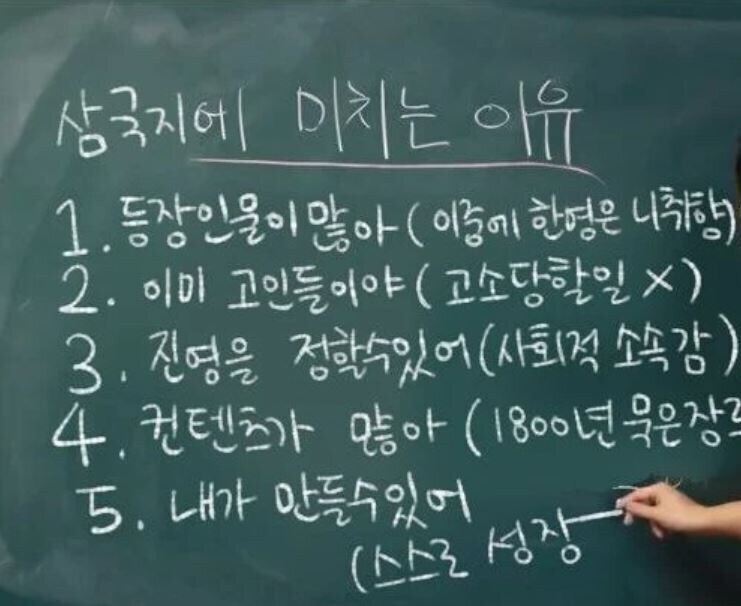 삼국지에 미치는 이유
1. 등장인물이 많아 (이중에 한명은 니취향)
2. 이미 고인들이야 (고소당할일 X)
3. 진영을 정할수있어 (사회적 소속감)
4. 컨텐츠가 많아 (1800년 묵은장르
5. 내가 만들수있어
(스스로 성장